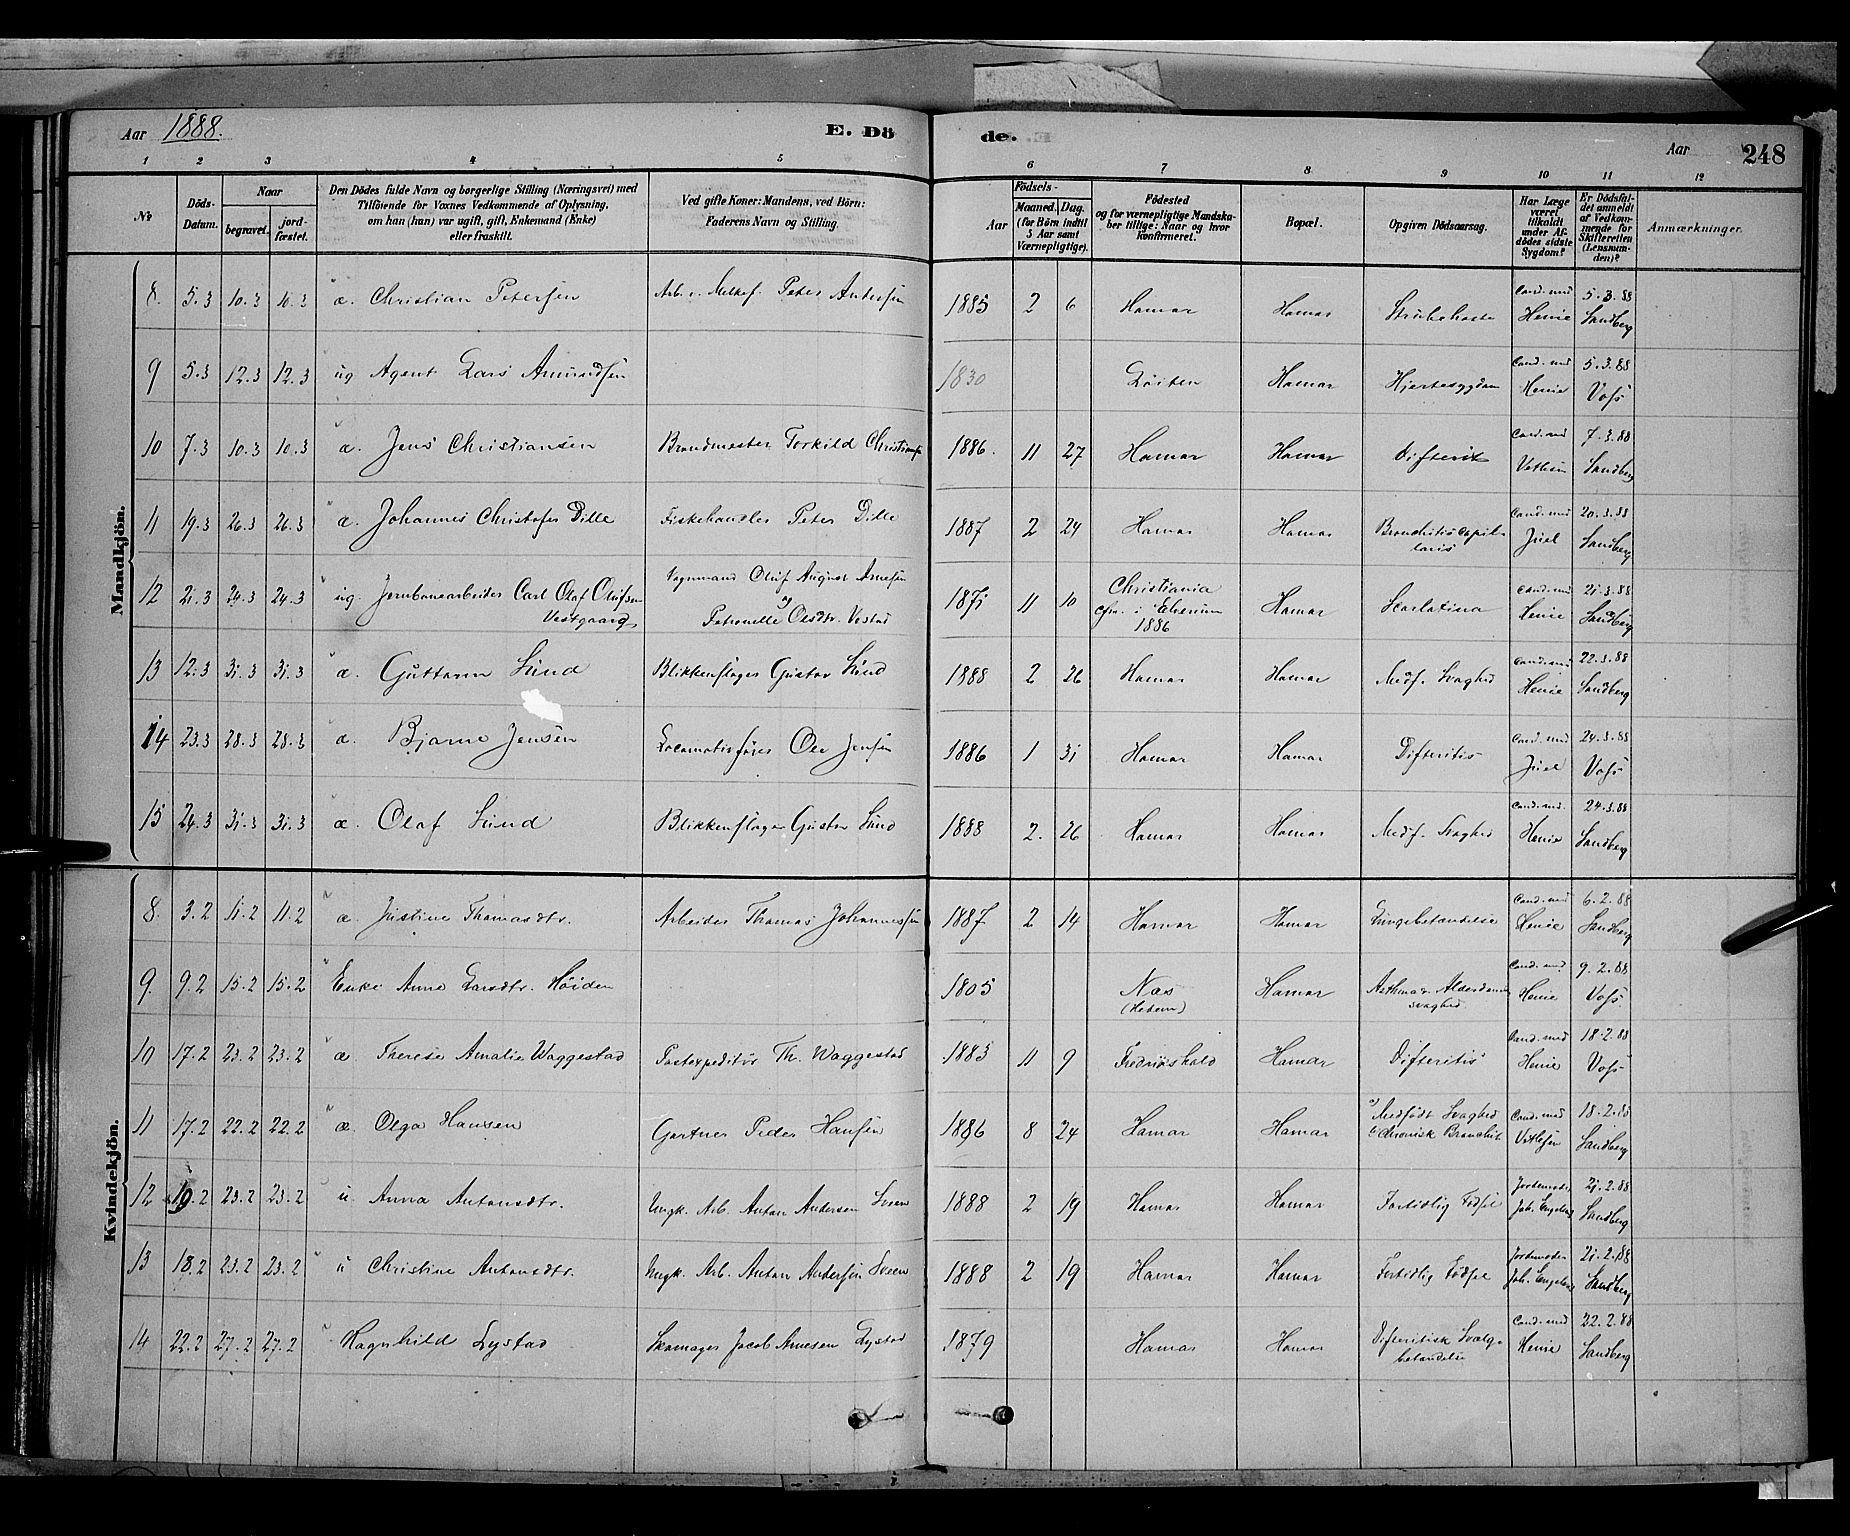 Aar 1888. E. Dö de. Aar 248
1 2 3 4 5 6 7 8 9 10 11 12
No Döds-Datum. Naar begravet. jord-fæstet. Den Dödes fulde Navn og borgerlige Stilling (Næringsvei) med Tilföiende for Voxnes Vedkommende af Oplysning, om han (hun) var ugift, gift, Enkemand (Enke) eller fraskilt. Ved gifte Koner: Mandens, ved Börn: Faderens Navn og Stilling. Födsels- Aar Maaned. Dag. (for Börn indtil 5 Aar samt Værnepligtige). Födested og for værnepligtige Mandskaber tillige: Naar og hvor konfirmeret. Bopæl. Opgiven Dödsaarsag. Har Læge været tilkaldt under Afdödes sidste Sygdom? Er Dödsfaldet anmeldt af Vedkommende for Skifteretten (Lensmanden)? Anmærkninger.
Mandkjön.
8. 5.3 10.3 10.3 æ. Christian Petersen Arb. v. Melkef. Peter Andersen 1885 2 6 Hamar Hamar Strubehoste Cand. med Henie 5.3.88 Sandberg
9 5.3 12.3 12.3 ug Agent Lars Amundsen 1830 Löiten Hamar Hjertesygdom Cand. med Henie 5.3.88 Vofs
10 7.3 10.3 10.3 æ. Jens Christiansen Brandmester Torkild Christiansen 1886. 11 27 Hamar Hamar Difterit Cand. med Vetlesen 7.3.88 Sandberg
11 19.3 26.3 26.3 æ. Johannes Christofer Dille Fiskehandler Peter Dille 1887 2 24 Hamar Hamar Bronchitis capillaris Cand. med Juel 20.3.88 Sandberg
12 21.3 24.3 24.3 ug. Jernbanearbeider Carl Olaf Olufsen Vestgaard Vognmand Oluf August Arnesen og Petronelle Olsdtr. Vestad 1871 11 10 Christiania Cfm. i Elverum 1886 Hamar Scarlatina Cand. med Henie 21.3.88 Sandberg
13 12.3 31.3 31.3 æ. Guttorm Lund Blikkenslager Gustav Lund 1888 2 26 Hamar Hamar Medf. Svaghed Cand. med Henie 22.3.88 Sandberg
14 23.3 28.3 28.3 æ. Bjarne Jensen Locomotivförer Ole Jensen 1886 1 31 Hamar Hamar Difteritis Cand. med Juel 24.3.88 Vofs
15 24.3 31.3 31.3 æ. Olaf Lund Blikkenslager Gustav Lund 1888 2. 26 Hamar Hamar Medf. Svaghed Cand. med. Henie 24.3.88 Sandberg
Kvindekjön.
8. 3.2 11.2 11.2 æ. Justine Thomasdtr. Arbeider Thomas Johannessen 1887 2 14 Hamar Hamar Lungebetændelse Cand. med Henie 6.2.88 Sandberg
9. 9.2 15.2 15.2 Enke Anne Larsdtr. Höiden 1805 Næs (Hedem) Hamar Asthma & Alderdomssvaghed Cand. med. Henie 9.2.88 Vofs
10 17.2 23.2 23.2 æ Therese Amalie Waggestad Postexpeditör Th. Waggestad 1883 11 9 Fredrikshald Hamar Difteritis Cand. med Henie 18.2.88 Vofs
11 17.2 22.2 22.2 æ. Olga Hansen Gartner Peder Hansen 1886 8 24 Hamar Hamar a) Medfödt Svaghed b) Chronisk Bronchit Cand. med Vetlesen 18.2.88 Sandberg
12 19.2 23.2 23.2 u Anna Antonsdtr. Ungk. Arb. Anton Andersen Sveen 1888 2 19 Hamar Hamar Fortidlig Födsel Jordemoder Joh. Engeberg 21.2.88 Sandberg
13 18.2 23.2 23.2 u Christine Antonsdtr. Ungk. Arb. Anton Andersen Sveen 1888 2 19 Hamar Hamar Fortidlig Födsel Jordemoder Joh. Engeberg 21.2.88 Sandberg
14 22.2 27.2 27.2 Ragnhild Lystad Skomager Jacob Arnesen Lystad 1879 Hamar Hamar Difteritisk Svalgbetændelse Cand. med Henie 22.2.88 Sandberg